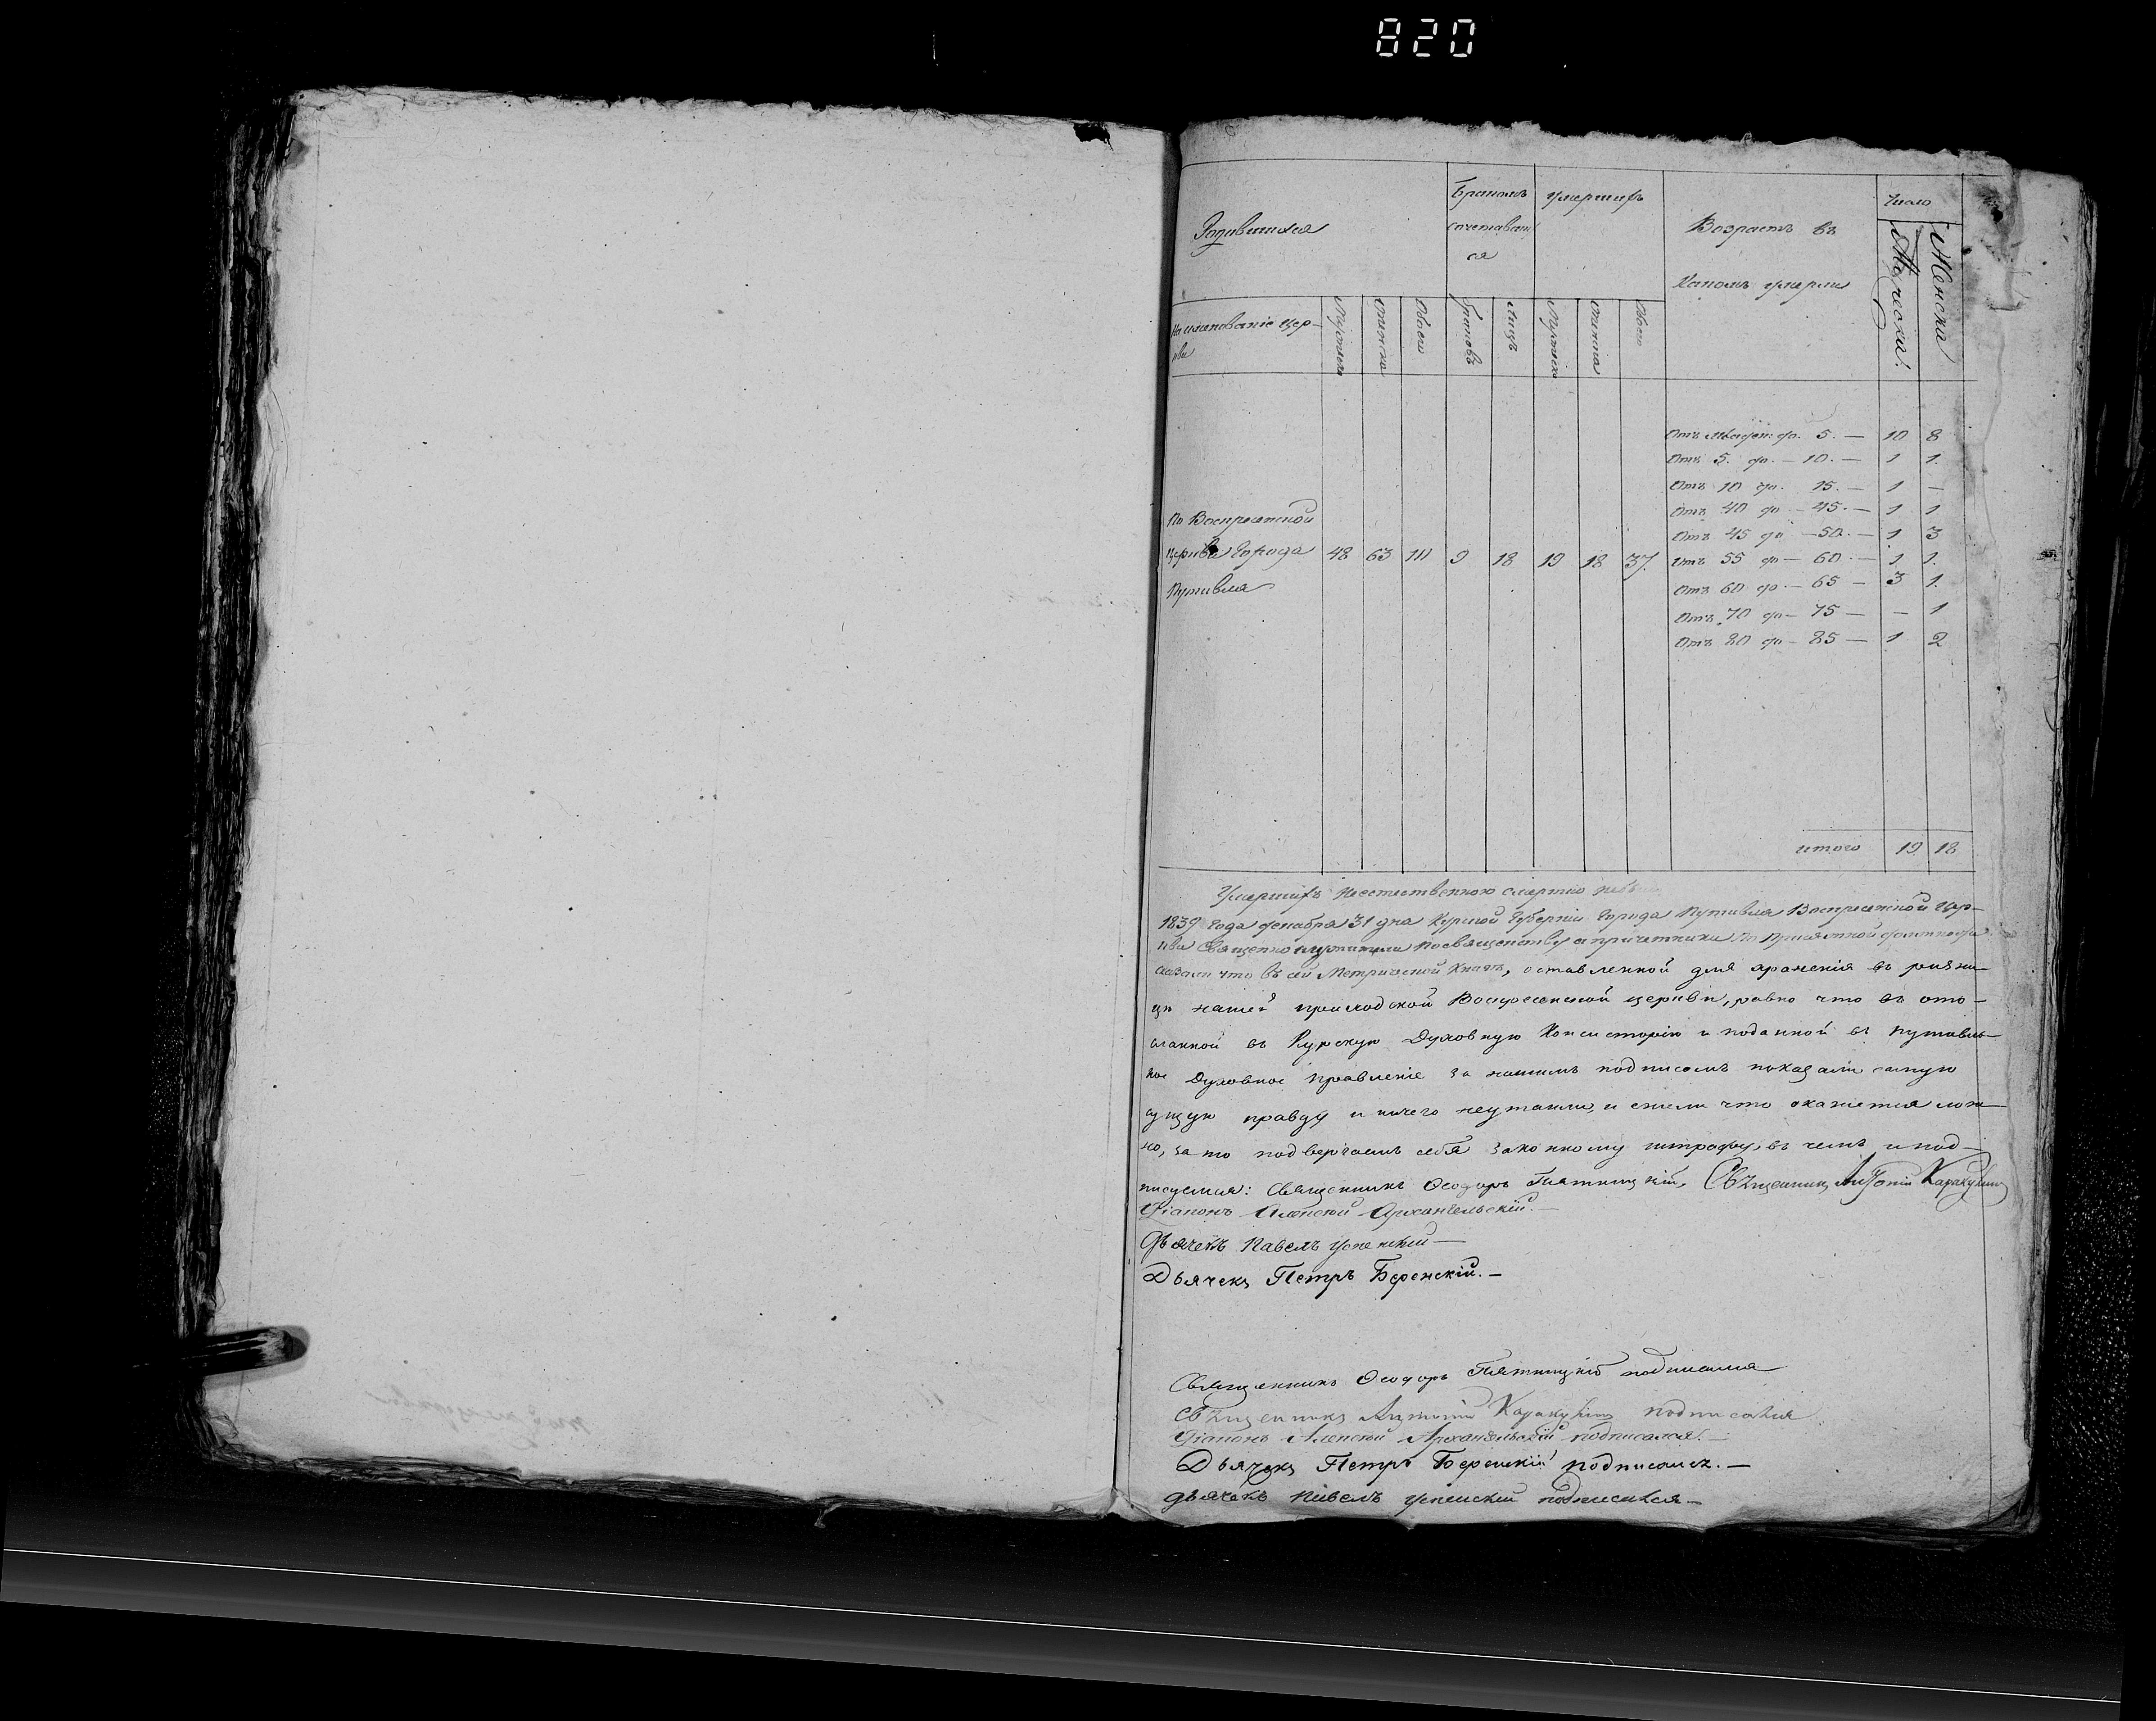 820
Родившихся
Бракомъ
сочетавших
ся
умершихъ
Возрастъ въ
какомъ умерли
Число
Мужеска
Женска
Наименованіе цер-
кви
Мужеска
Женска
Обоего
Браковъ
Лицъ
Мужеска
Женска
Обоего
Отъ 5. до — 10. — 1 1.
Отъ 10 до. 15. — 1 —
Отъ 40 до — 45. — 1 1
Отъ 45 до — 50. — 1 3
Отъ 55 до — 60 — 1 1.
Отъ 60 до. — 65 — 3 1.
Отъ 70 до — 75 — — 1
Отъ 80 до — 85 — 1 2
По Воскресенской
церкви Города 48 63 111 9 18 19 18 37.
Путивля
итого 19 18
Умершихъ неестественною смертію
1839 Года декабря 31 дня Курской Губерніи Города Путивля Воскресенской Цер-
кви Священно служители по священству а причетники по присяжной должности
сказали что въ сей Метрической Книгѣ, оставленной для храненія въ ризни-
цѣ нашей приходской Воскресенской церкви, равно что въ ото-
сланной въ Курскую Духовную Консисторію и поданной въ Путивль-
ное Духовное Правленіе за нашимъ подписомъ показали самую
сущую правду и ничего неутаили, и ежели что окажется лож-
но, за то подвергаемъ себя законному штрафу, въ чемъ и под-
писуемся: Священникъ Ѳеодоръ Пятницкій, Священникъ Антоній Каракулинъ
Діаконъ Алексѣй Архангельскій. —
Дьячекъ Павелъ Успенскій —
Дьячекъ Петръ Беренскій. —
Священникъ Ѳеодоръ Пятницкій подписался
Священникъ Антоній Каракулинъ подписался
Діаконъ Алексѣй Архангельскій подписался. —
Дьячекъ Петръ Беренскій подписался. —
Дьячекъ Павелъ Успенскій подписался —